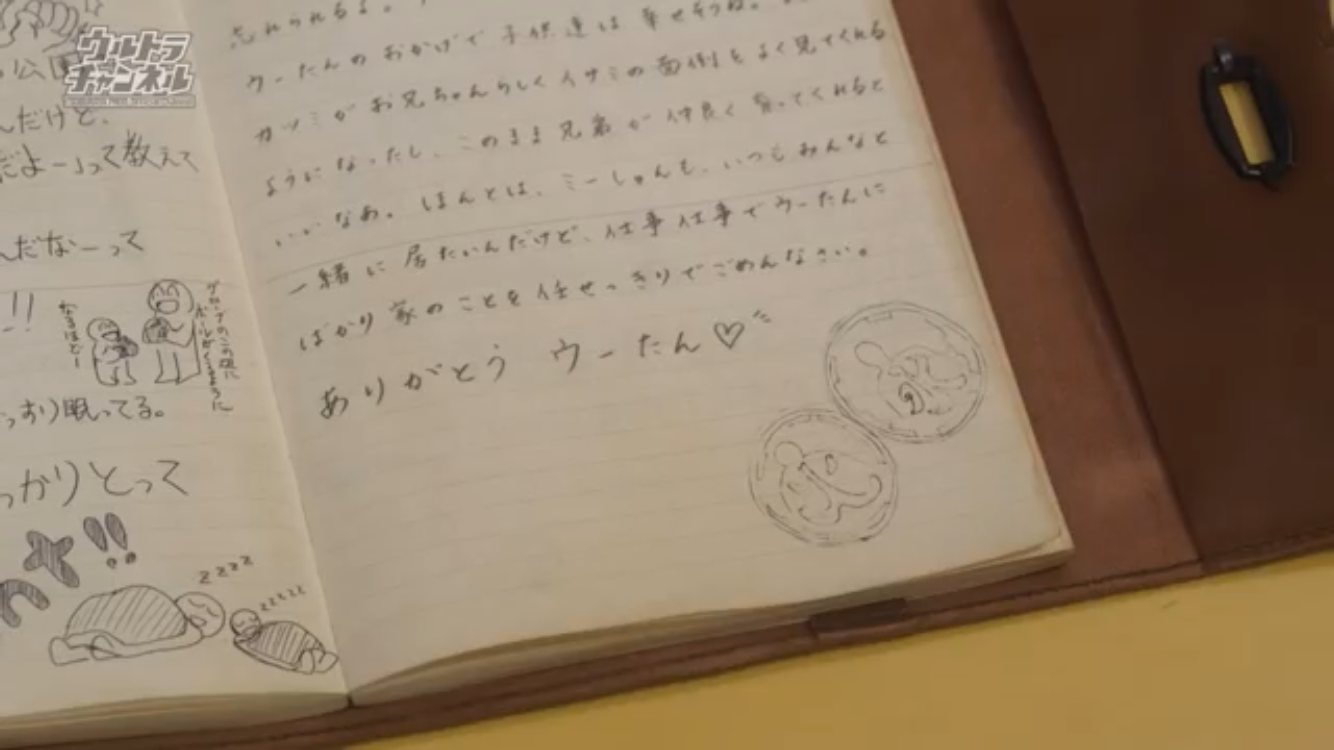 ウルトラ
チャンネル
公園
んだけど、
だよー」って教えて
んだなーって
!!
なるほどー
グローブのこの辺に
ボールがくるように
っすり眠ってる。
っかりとって
!!
zzzz
zzzzz
忘れられるよ。
ウーたんのおかげで子供達は幸せそうね。
カツミがお兄ちゃんらしくイサミの面倒をよく見てくれる
ようになったし、このまま兄弟が仲良く育ってくれると
いいなあ。ほんとは、ミーしゃんも、いつもみんなと
一緒に居たいんだけど、仕事仕事でウーたんに
ばかり家のことを任せっきりでごめんなさい。
ありがとう ウーたん♡